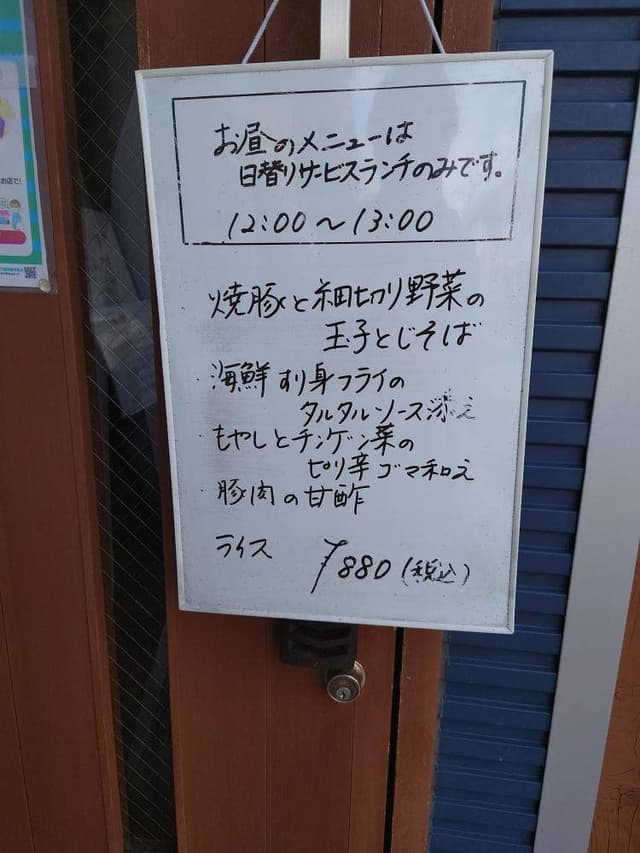 お昼のメニューは
日替りサービスランチのみです。
12:00〜13:00
焼豚と細切り野菜の
玉子とじそば
・海鮮すり身フライの
タルタルソース添え
・もやしとチンゲン菜の
ピリ辛ゴマ和え
・豚肉の甘酢
ライス ¥880(税込)